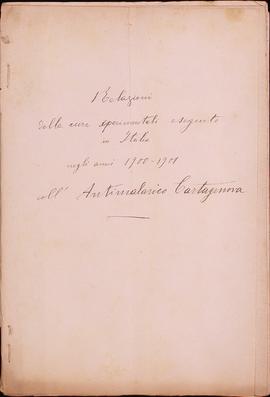 Relazioni
delle cure sperimentali eseguite
in Italia
negli anni 1900-1901
coll' Antimalarico Cartagenova